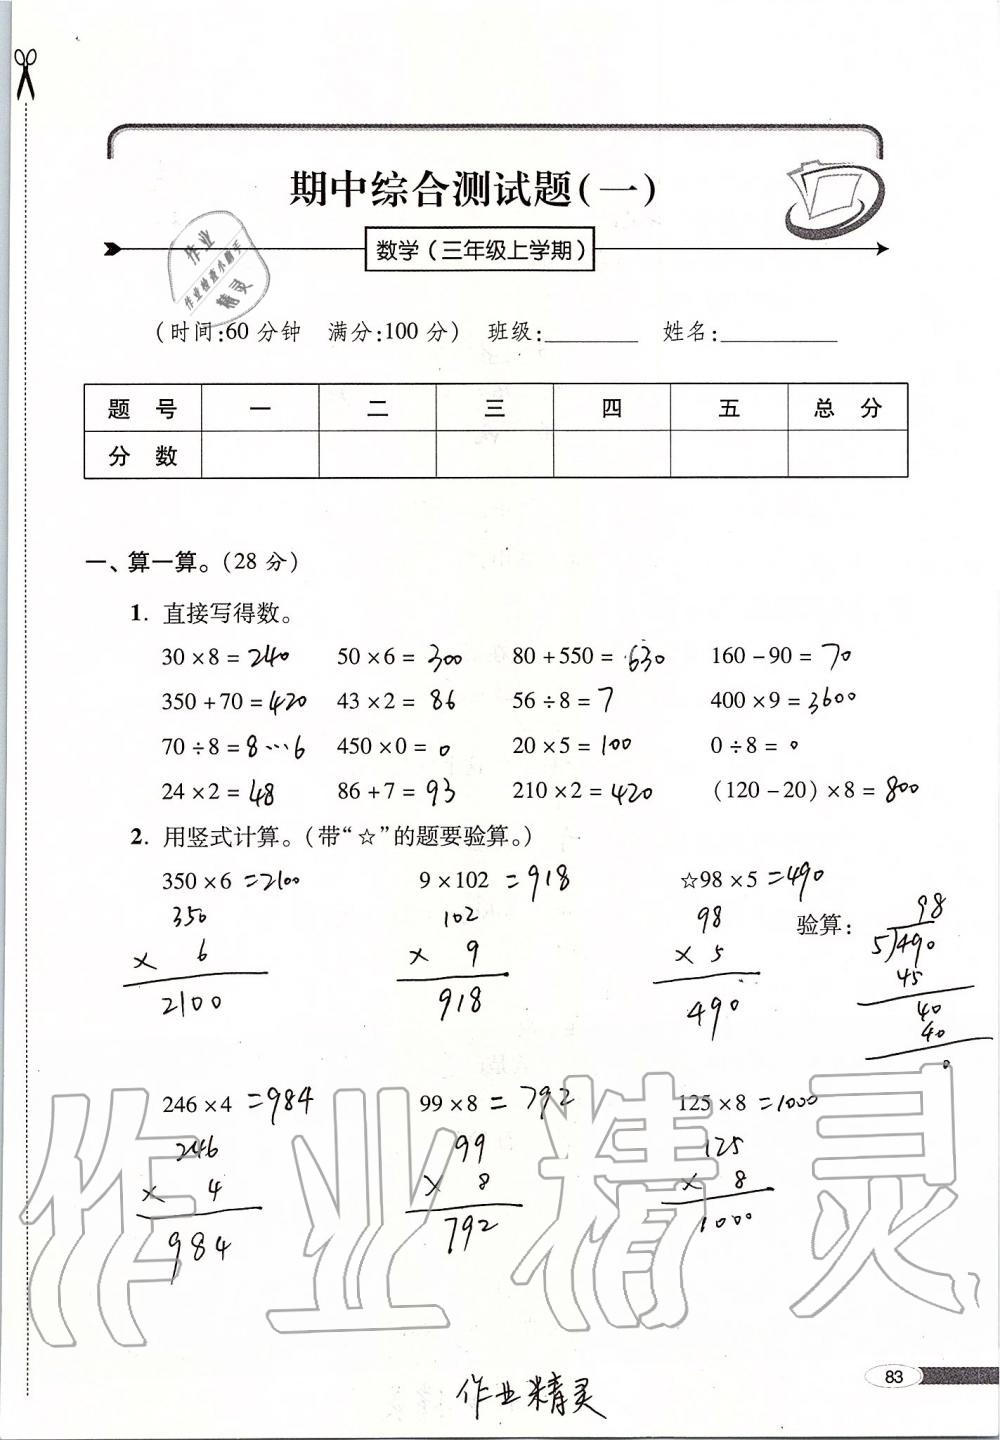 期中综合测试题(一)
数学(三年级上学期)
作业
作业检查小助手
精灵
(时间:60 分钟 满分:100 分) 班级:________ 姓名:________
题 号 一 二 三 四 五 总 分
分 数
一、算一算。(28 分)
1. 直接写得数。
30×8=240 50×6=300 80+550=630 160-90=70
350+70=420 43×2=86 56÷8=7 400×9=3600
70÷8=8…6 450×0=0 20×5=100 0÷8=0
24×2=48 86+7=93 210×2=420 (120-20)×8=800
2. 用竖式计算。(带“☆”的题要验算。)
350×6=2100 9×102=918 ☆98×5=490
350
× 6
2100
102
× 9
918
98
× 5
490
验算:
98
5)490
45
40
40
0
246×4=984 99×8=792 125×8=1000
246
× 4
984
99
× 8
792
125
× 8
1000
作业精灵
作业精灵
83